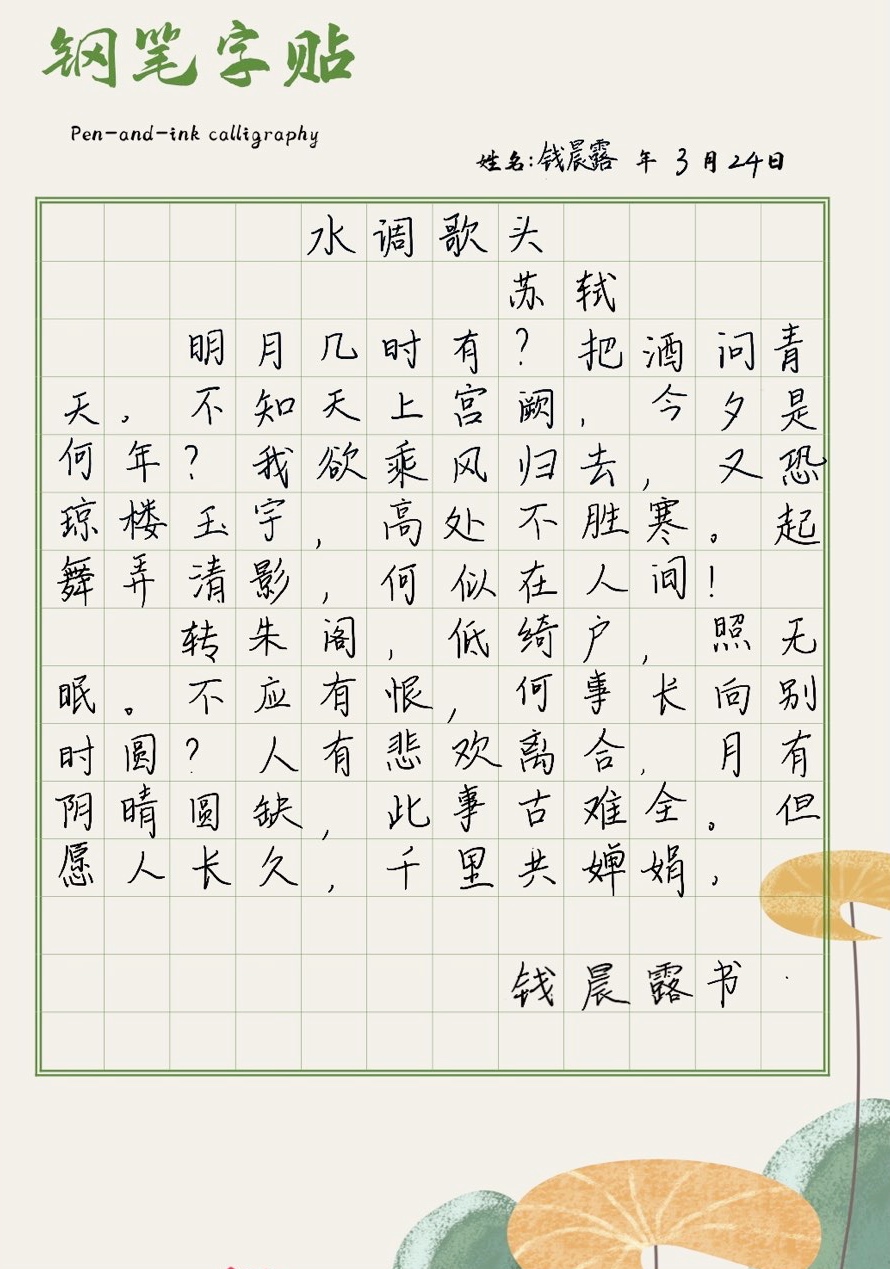 钢笔字贴
Pen-and-ink calligraphy
姓名:钱晨露 年 3月24日
水调歌头
苏轼
明月几时有?把酒问青
天。不知天上宫阙,今夕是
何年?我欲乘风归去,又恐
琼楼玉宇,高处不胜寒。起
舞弄清影,何似在人间!
转朱阁,低绮户,照无
眠。不应有恨,何事长向别
时圆?人有悲欢离合,月有
阴晴圆缺,此事古难全。但
愿人长久,千里共婵娟,
钱晨露书